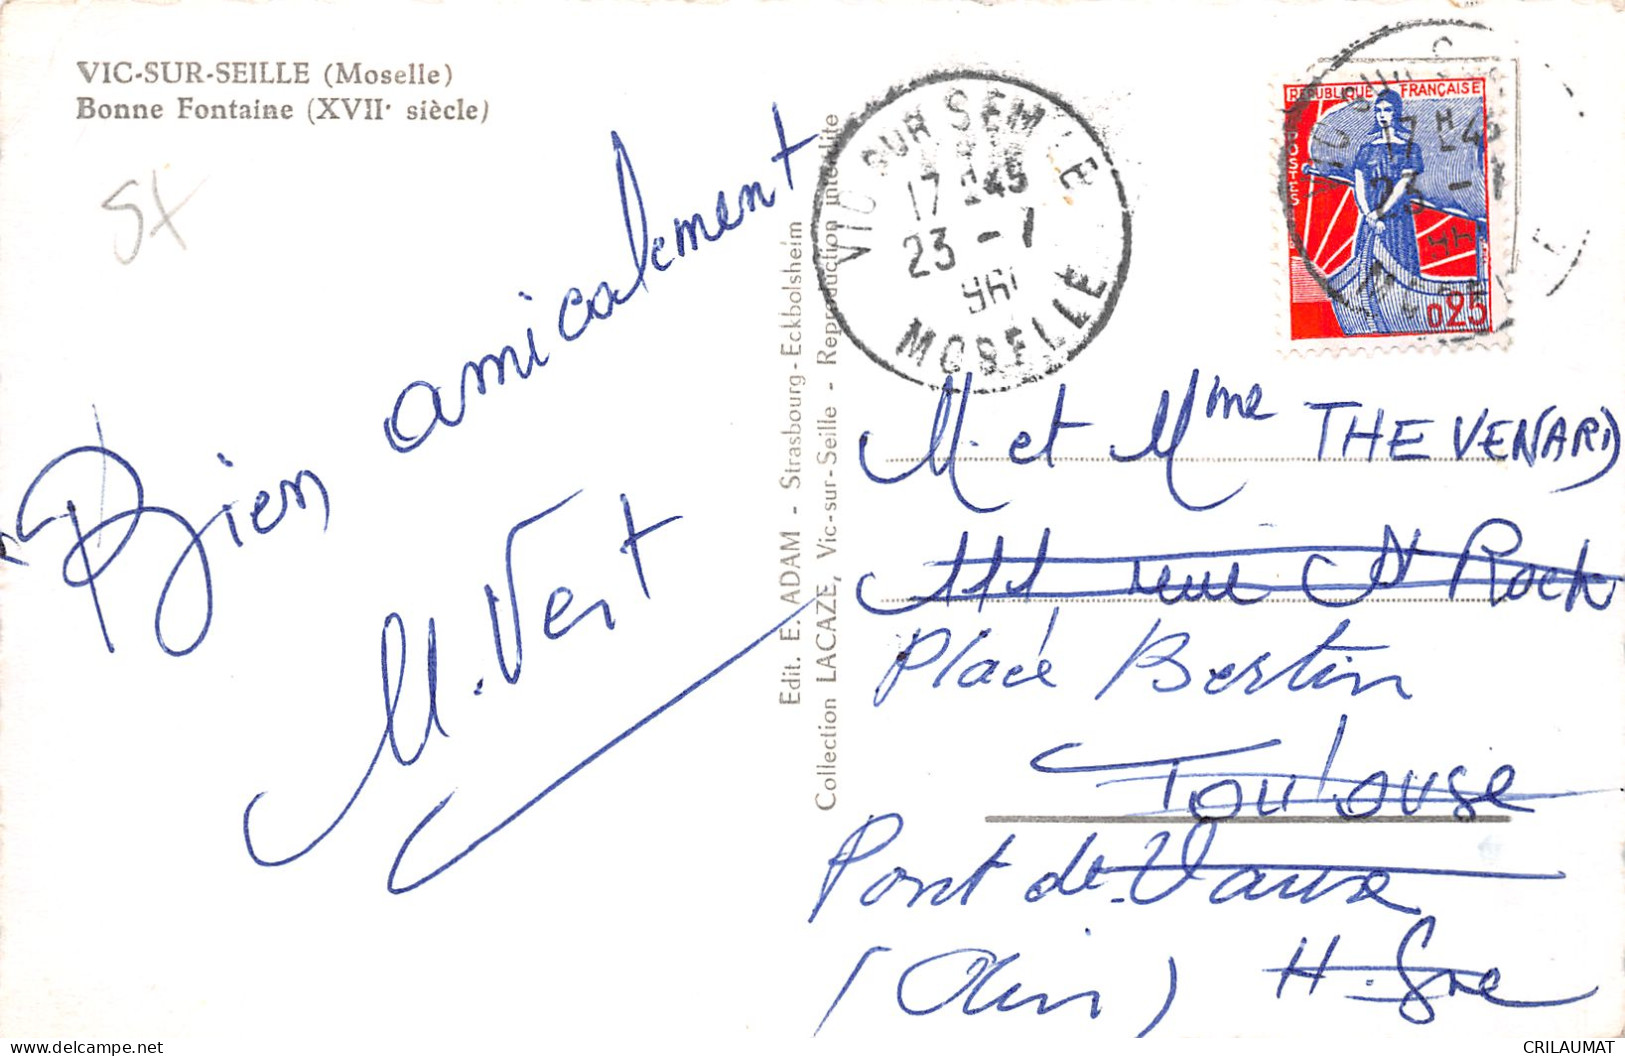 VIC-SUR-SEILLE (Moselle)
Bonne Fontaine (XVIIe siècle)
5x
Bien amicalement
M. Vert
Edit. E. ADAM - Strasbourg-Eckbolsheim
Collection LACAZE, Vic-sur-Seille - Reproduction interdite
VIC SUR SEILLE
17 H 45
23 - 7
1961
MOSELLE
REPUBLIQUE FRANÇAISE
POSTES
0,25
M. et Mme THEVENARD
111 rue St Roch
Place Bertin
Toulouse
Pont de Vaux
(Ain) H. Gne
CRILAUMAT